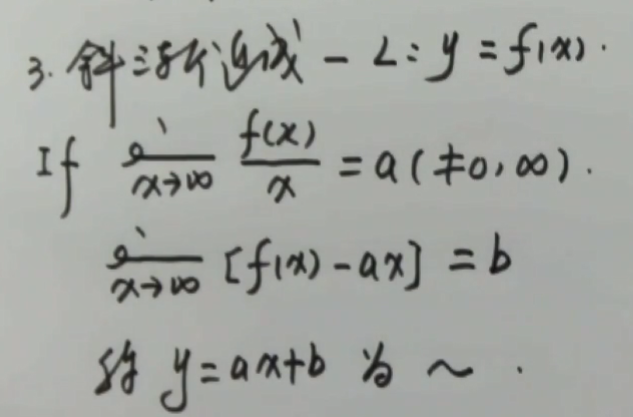 3. 斜渐近线 — L: y = f(x).
If lim x→∞ f(x)/x = a (≠0, ∞).
lim x→∞ [f(x) - ax] = b
称 y = ax+b 为 ~ .